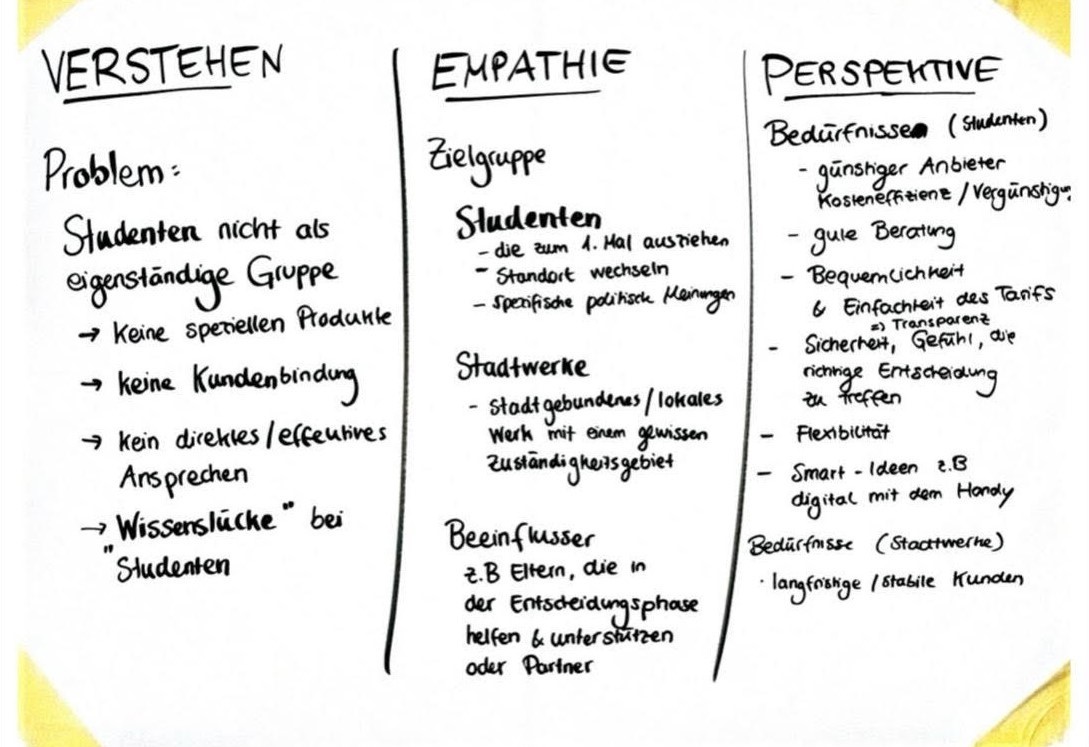 VERSTEHEN
Problem:
Studenten nicht als
eigenständige Gruppe
→ keine speziellen Produkte
→ keine Kundenbindung
→ kein direktes/effektives
Ansprechen
→ "Wissenslücke" bei
Studenten
EMPATHIE
Zielgruppe
Studenten
- die zum 1. Mal ausziehen
- Standort wechseln
- spezifische politische Meinungen
Stadtwerke
- Stadtgebundenes/lokales
Werk mit einem gewissen
Zuständigkeitsgebiet
Beeinflusser
z.B Eltern, die in
der Entscheidungsphase
helfen & unterstützen
oder Partner
PERSPEKTIVE
Bedürfnisse (Studenten)
- günstiger Anbieter
Kosteneffizienz/Vergünstigung
- gute Beratung
- Bequemlichkeit
& Einfachheit des Tarifs
=> Transparenz
- Sicherheit, Gefühl, die
richtige Entscheidung
zu treffen
- Flexibilität
- Smart-Ideen z.B
digital mit dem Handy
Bedürfnisse (Stadtwerke)
· langfristige/stabile Kunden